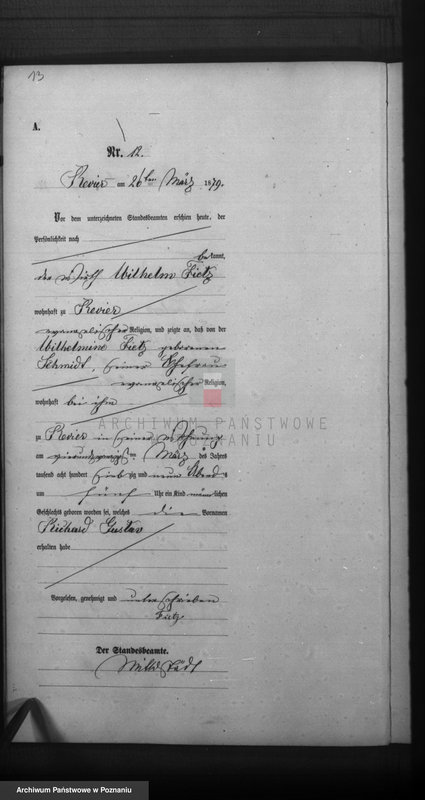 13
A.
Nr. 12.
Revier am 26ten März 1879.
Vor dem unterzeichneten Standesbeamten erschien heute, der
Persönlichkeit nach
bekannt,
der Wirth Wilhelm Fietz
wohnhaft zu Revier
evangelischer Religion, und zeigte an, daß von der
Wilhelmine Fietz geborenen
Schmidt, seiner Ehefrau
evangelischer Religion,
wohnhaft bei ihm
ARCHIWUM PAŃSTWOWE
W POZNANIU
zu Revier in seiner Wohnung
am vierundzwanzigsten März des Jahres
tausend acht hundert siebzig und neun Abends
um fünf Uhr ein Kind männlichen
Geschlechts geboren worden sei, welches die Vornamen
Richard Gustav
erhalten habe
Vorgelesen, genehmigt und unterschrieben
Fietz
Der Standesbeamte.
Archiwum Państwowe w Poznaniu